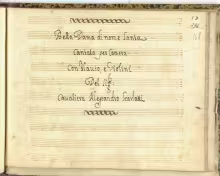 Bella Dama di nome Santa
Cantata per Camera
Con Flauto, e Violini
Del Sig.
Cavaliere Alessandro Scarlatti